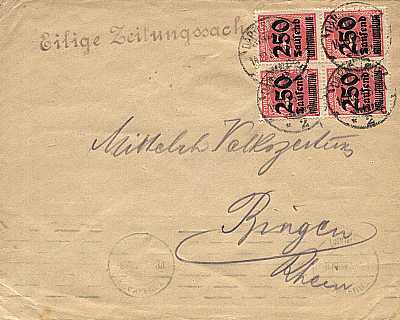 Eilige Zeitungssache
250 Tausend
250 Tausend
250 Tausend
250 Tausend
* 2
* 2
Mittelrh Volkszeitung
Bingen
Rhein